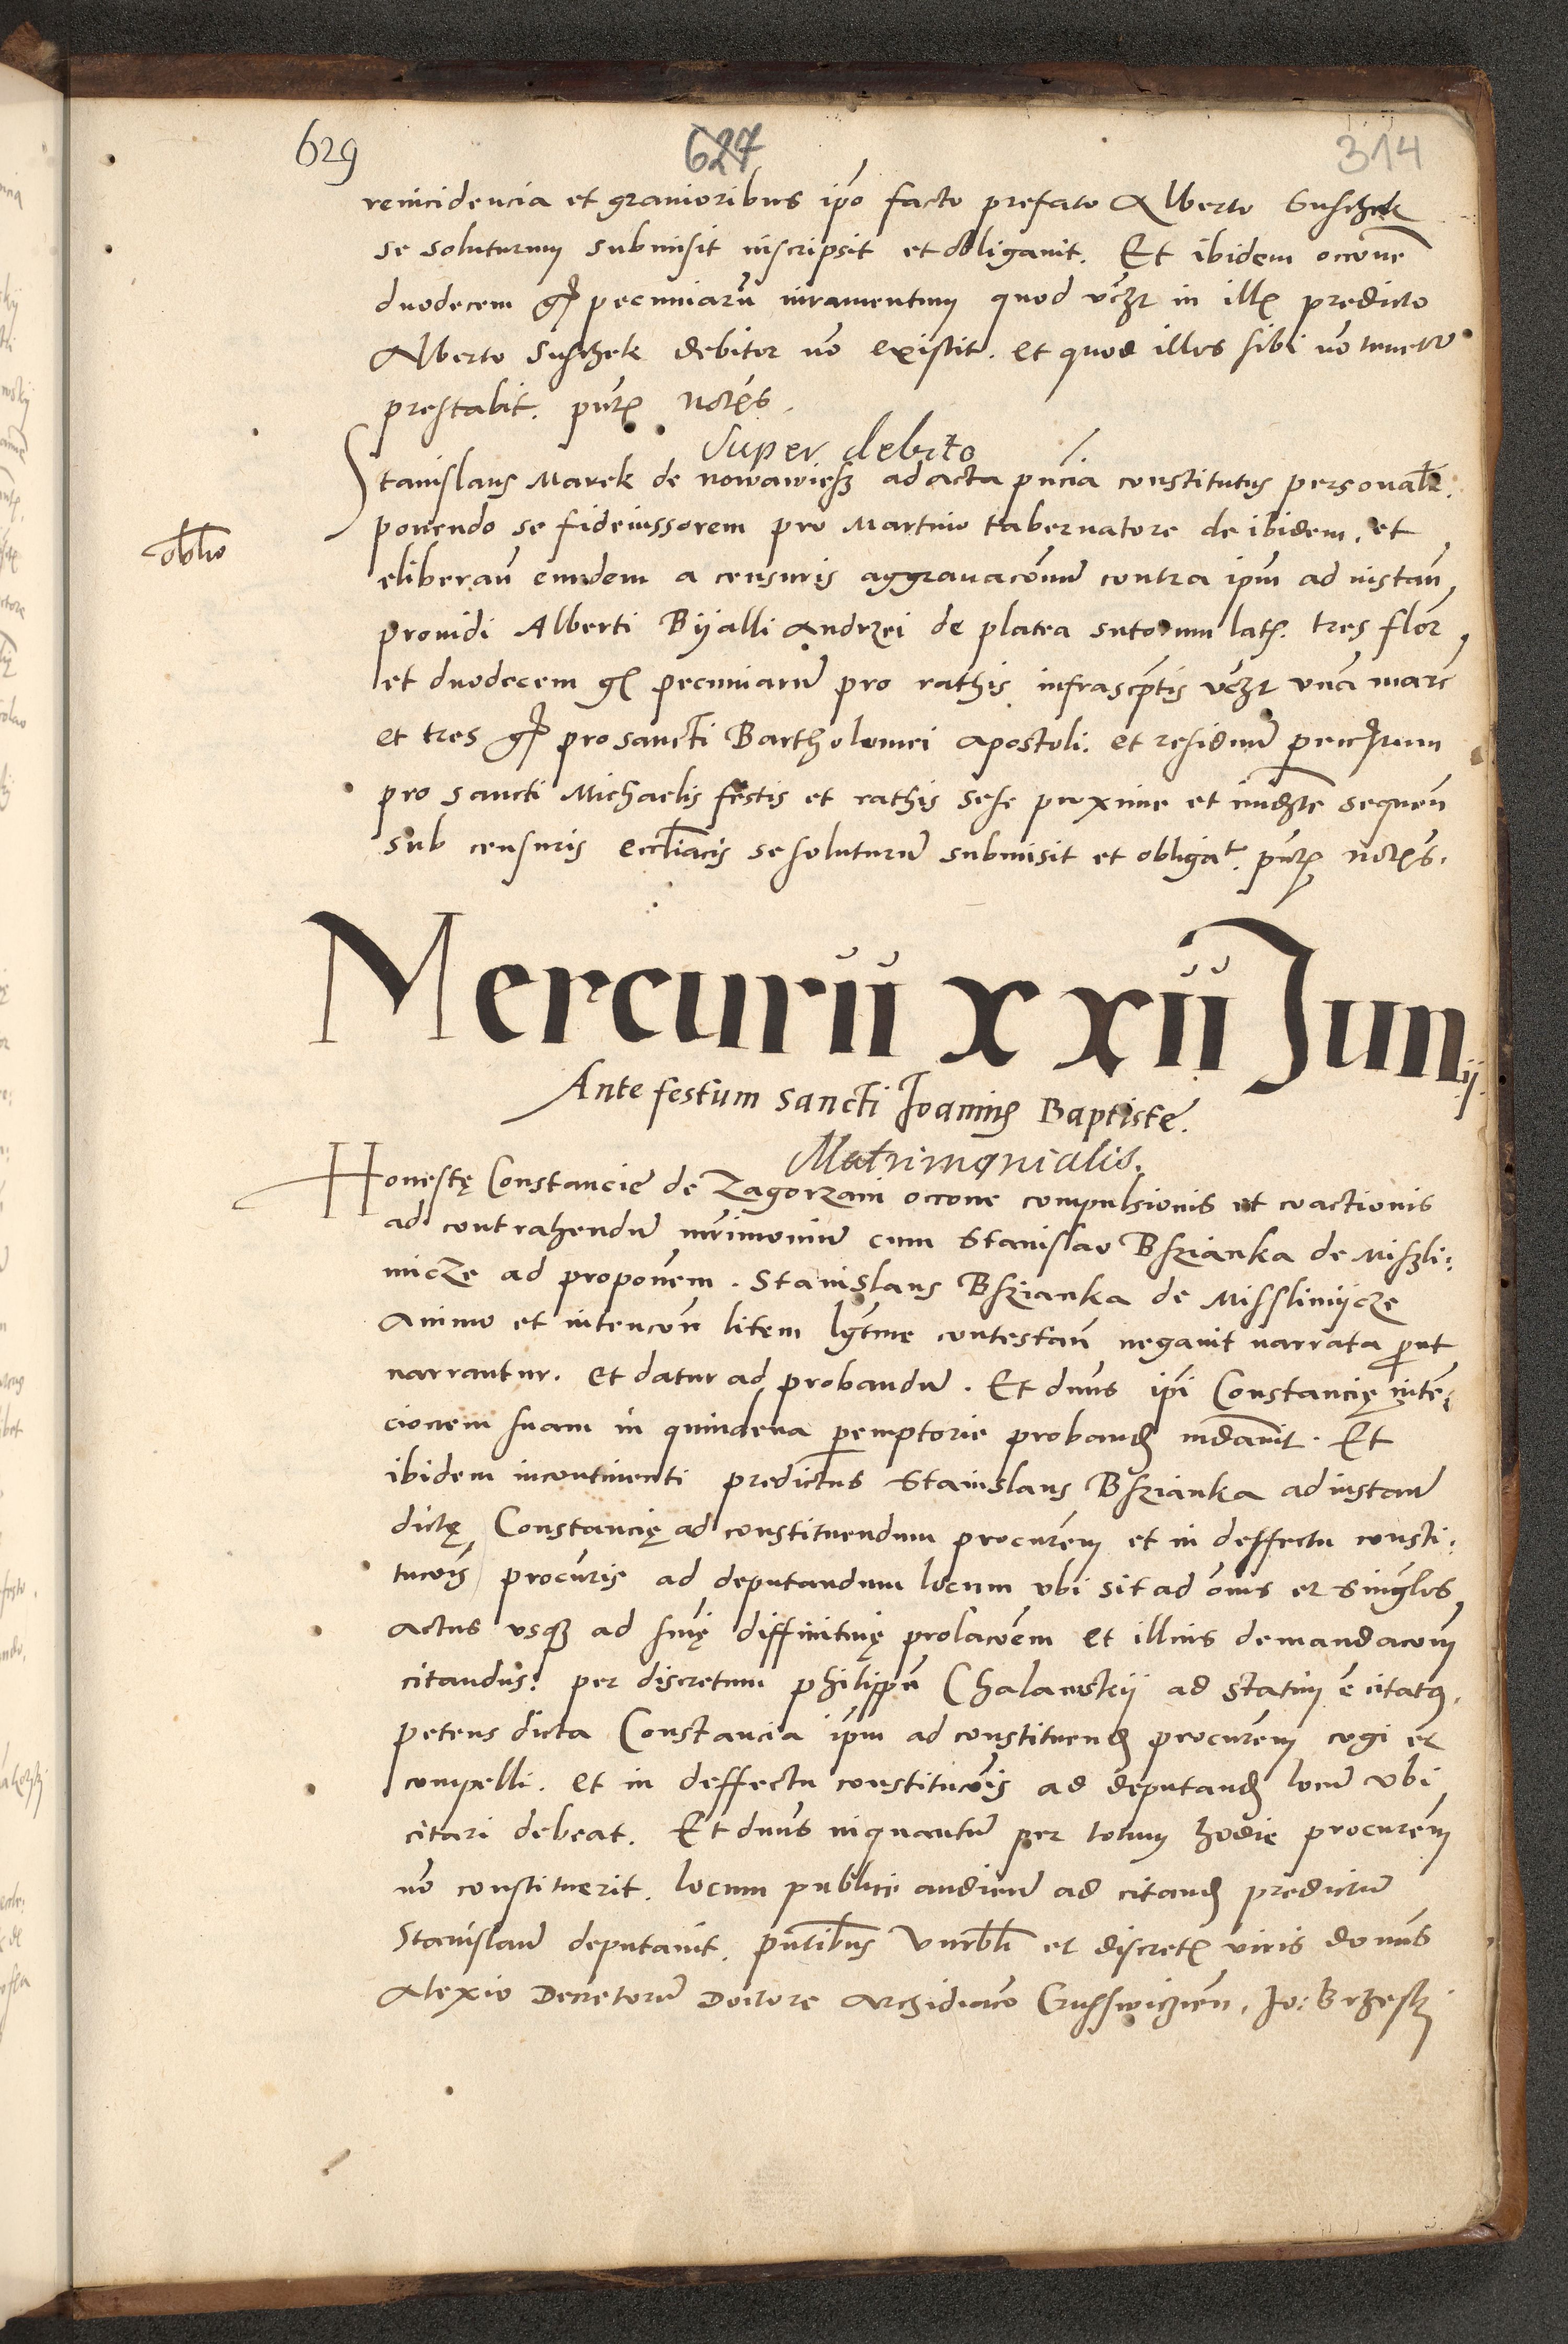 629 627 314
reincidencia et gravioribus ip̄o facto prefato Alberto Suschek
se soluturum submisit inscripsit et obligavit. Et ibidem occone
duodecem gr pecuniarū iuramentum quod vcz in ill predicto
Alberto Suschek debitor nō existit. et quod illos sibi nō tenetr
prestabit. pn̄t not.
Super debito
Stanislaus Marek de nowawiesz ad acta pn̄cia constitutus personalr.
ponendo se fideiussorem pro Martino tabernatore de ibidem. et
obli͞o
eliberan̄ eundem a censuris aggravac͞onum contra ipm̄ ad instan̄
providi Alberti Byalli Andrzei de platea sutorum lat. tres flor
et duodecem g pecuniarum pro rathis infrascptis vcz vnā marc
et tres gr pro sancti Bartholomei apostoli. et residuū
pro sancti Michaelis festis et rathis sese proxime et imediate sequen̄
sub censuris eccl̄iacis se soluturū submisit et obligat. pn̄t not.
Mercurii xxii Junij
Ante festum sancti Joannis Baptistę.
Matrimonialis.
Honestę Constancie de Zagorzani occone compulsionis et coactionis
ad contrahendū mr̄imoniū cum Stanislao Bszianka de Miszli:
micze ad proponem. Stanislaus Bszianka de Misslimijcze
Animo et intencon̄ litem lgt̄me contestan̄ negavit narrata prout
narrantur. et datur ad probandū. Et dn̄us ipi Constancię inten:
cionem suam in quindena peremptorie proband mdavit. Et
ibidem incontinenti predictus Stanislaus Bszianka ad instan̄
dictę Constancię ad constituendum procurem̄ et in deffectu consti:
tucois procuris ad deputandum locum vbi sit ad om̄s et singlos
actus vsqꝫ ad sn̄ię diffinitivę prolacoem et illius demandacom
citandus. per discretum philippū Chalawskij ad statim ē citatus.
petens dicta Constancia ipm̄ ad constituend procurem̄ cogi et
compelli. et in deffectu constitucois ad deputand locū vbi
citari debeat. Et dn̄us inquantū per totum hodie procurem̄
nō constituerit. locum publice audienc̄ ad citand predictū
Stanislaū deputavit. pn̄tibus Vnrbli et discret viris domīs
Alexio Decretorū Doctore Archidiaco . Jo: Brzesky